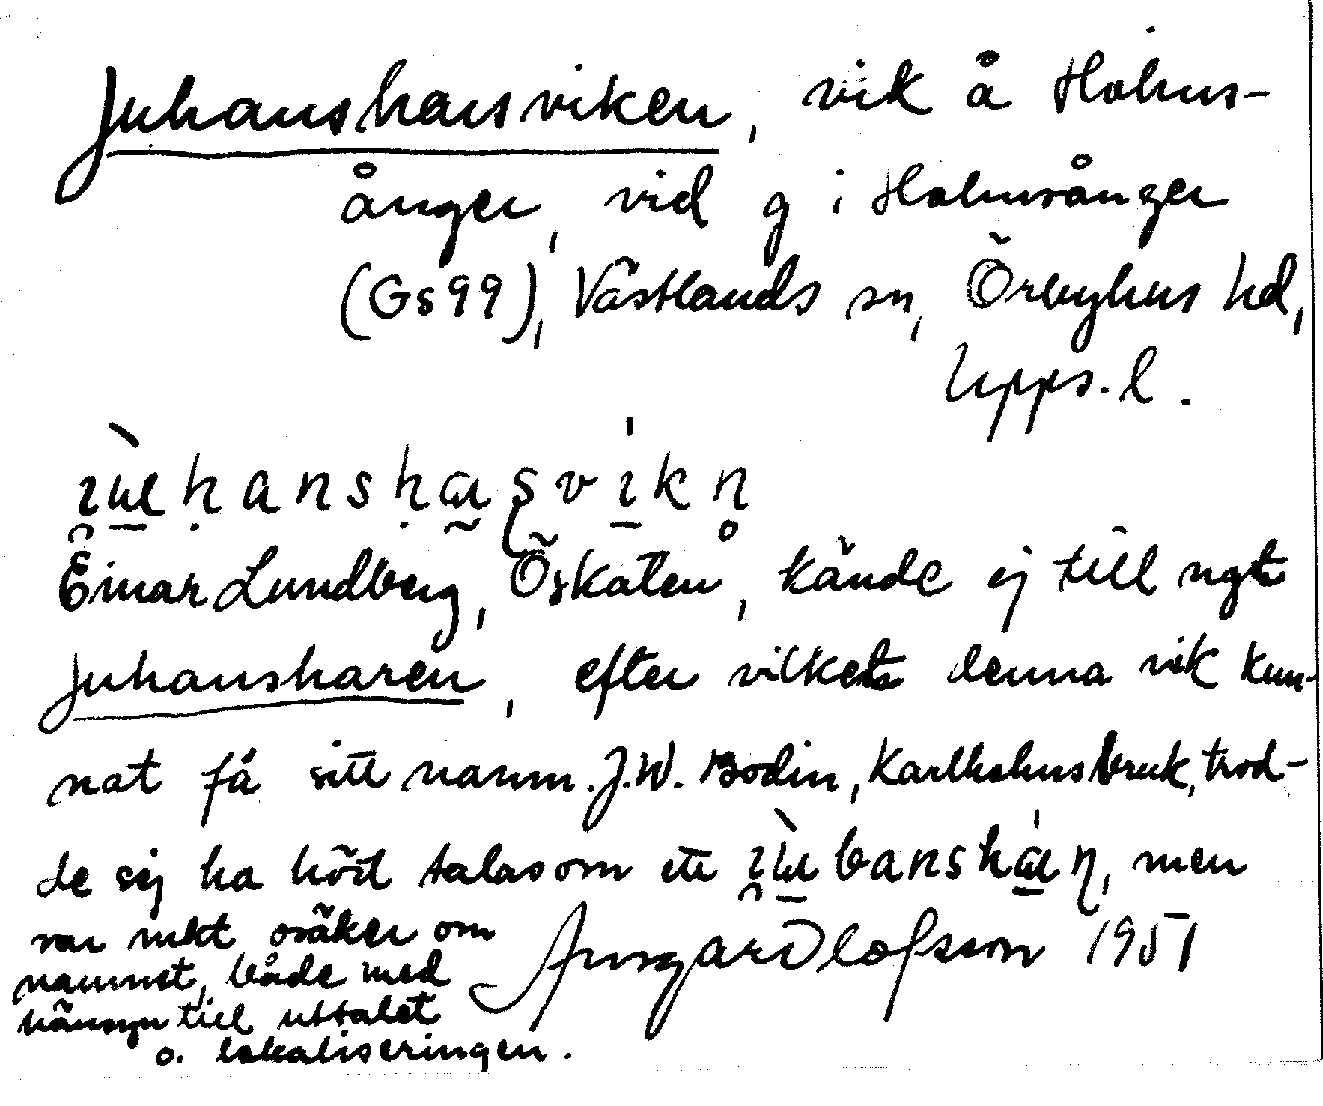 Juhansharsviken, vik å Holmsånger
ånger, vid g i Holmsånger
(Gs99), Västlands sn, Örbyhus hd,
Upps. l.
Einar Lundberg, Öskaten, kände ej till ngt
Juhansharen, efter vilket denna vik kun-
nat få sitt namn. J.W. Bodin, Karlholmsbruk, trod-
de sig ha hört talas om ett men
var mkt osäker om
namnet, både med
hänsyn till uttalet
o. lokaliseringen.
Ingar Olofsson 1951